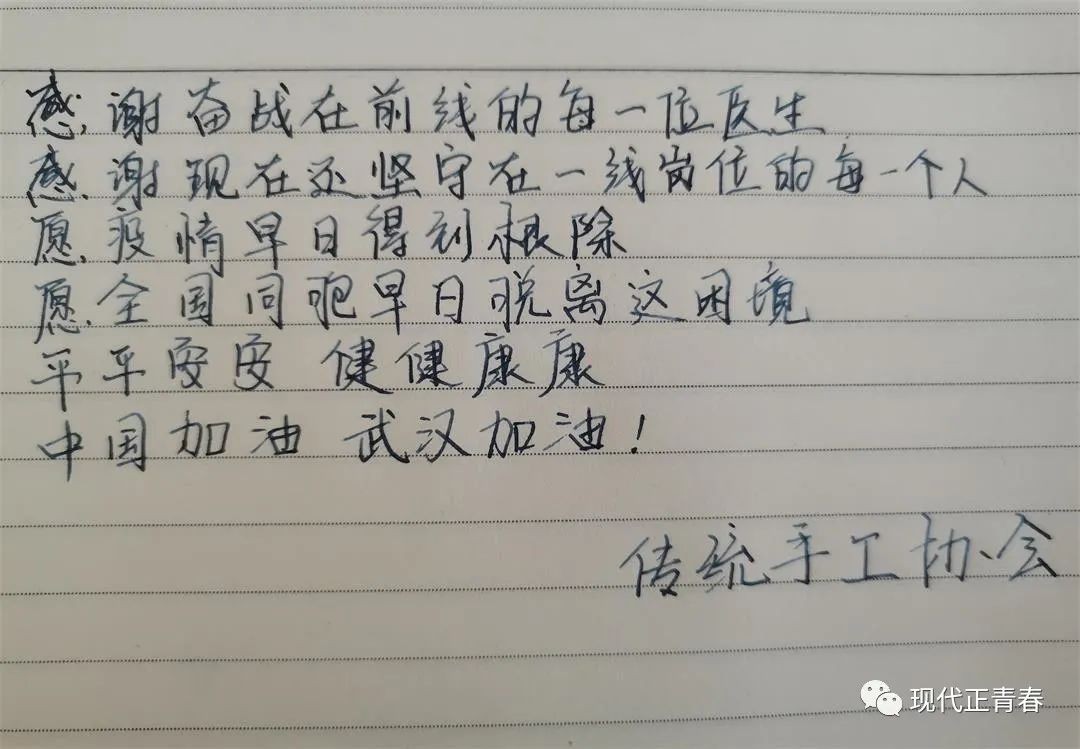 感谢奋战在前线的每一位医生
感谢现在还坚守在一线岗位的每一个人
愿疫情早日得到根除
愿全国同胞早日脱离这困境
平平安安 健健康康
中国加油 武汉加油!
传统手工协会
现代正青春